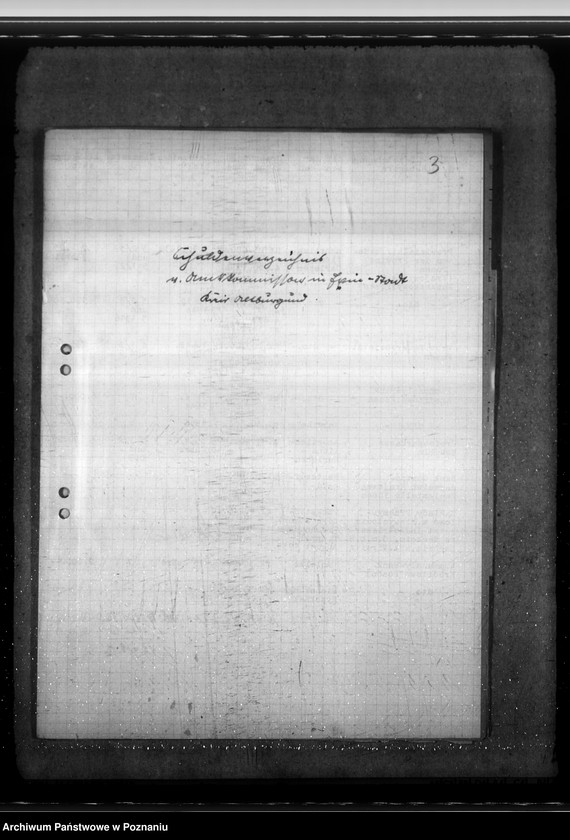 3
Schuldenverzeichnis
v. Amtskommissar in Exin-Stadt
Kreis Altburgund.
Archiwum Państwowe w Poznaniu